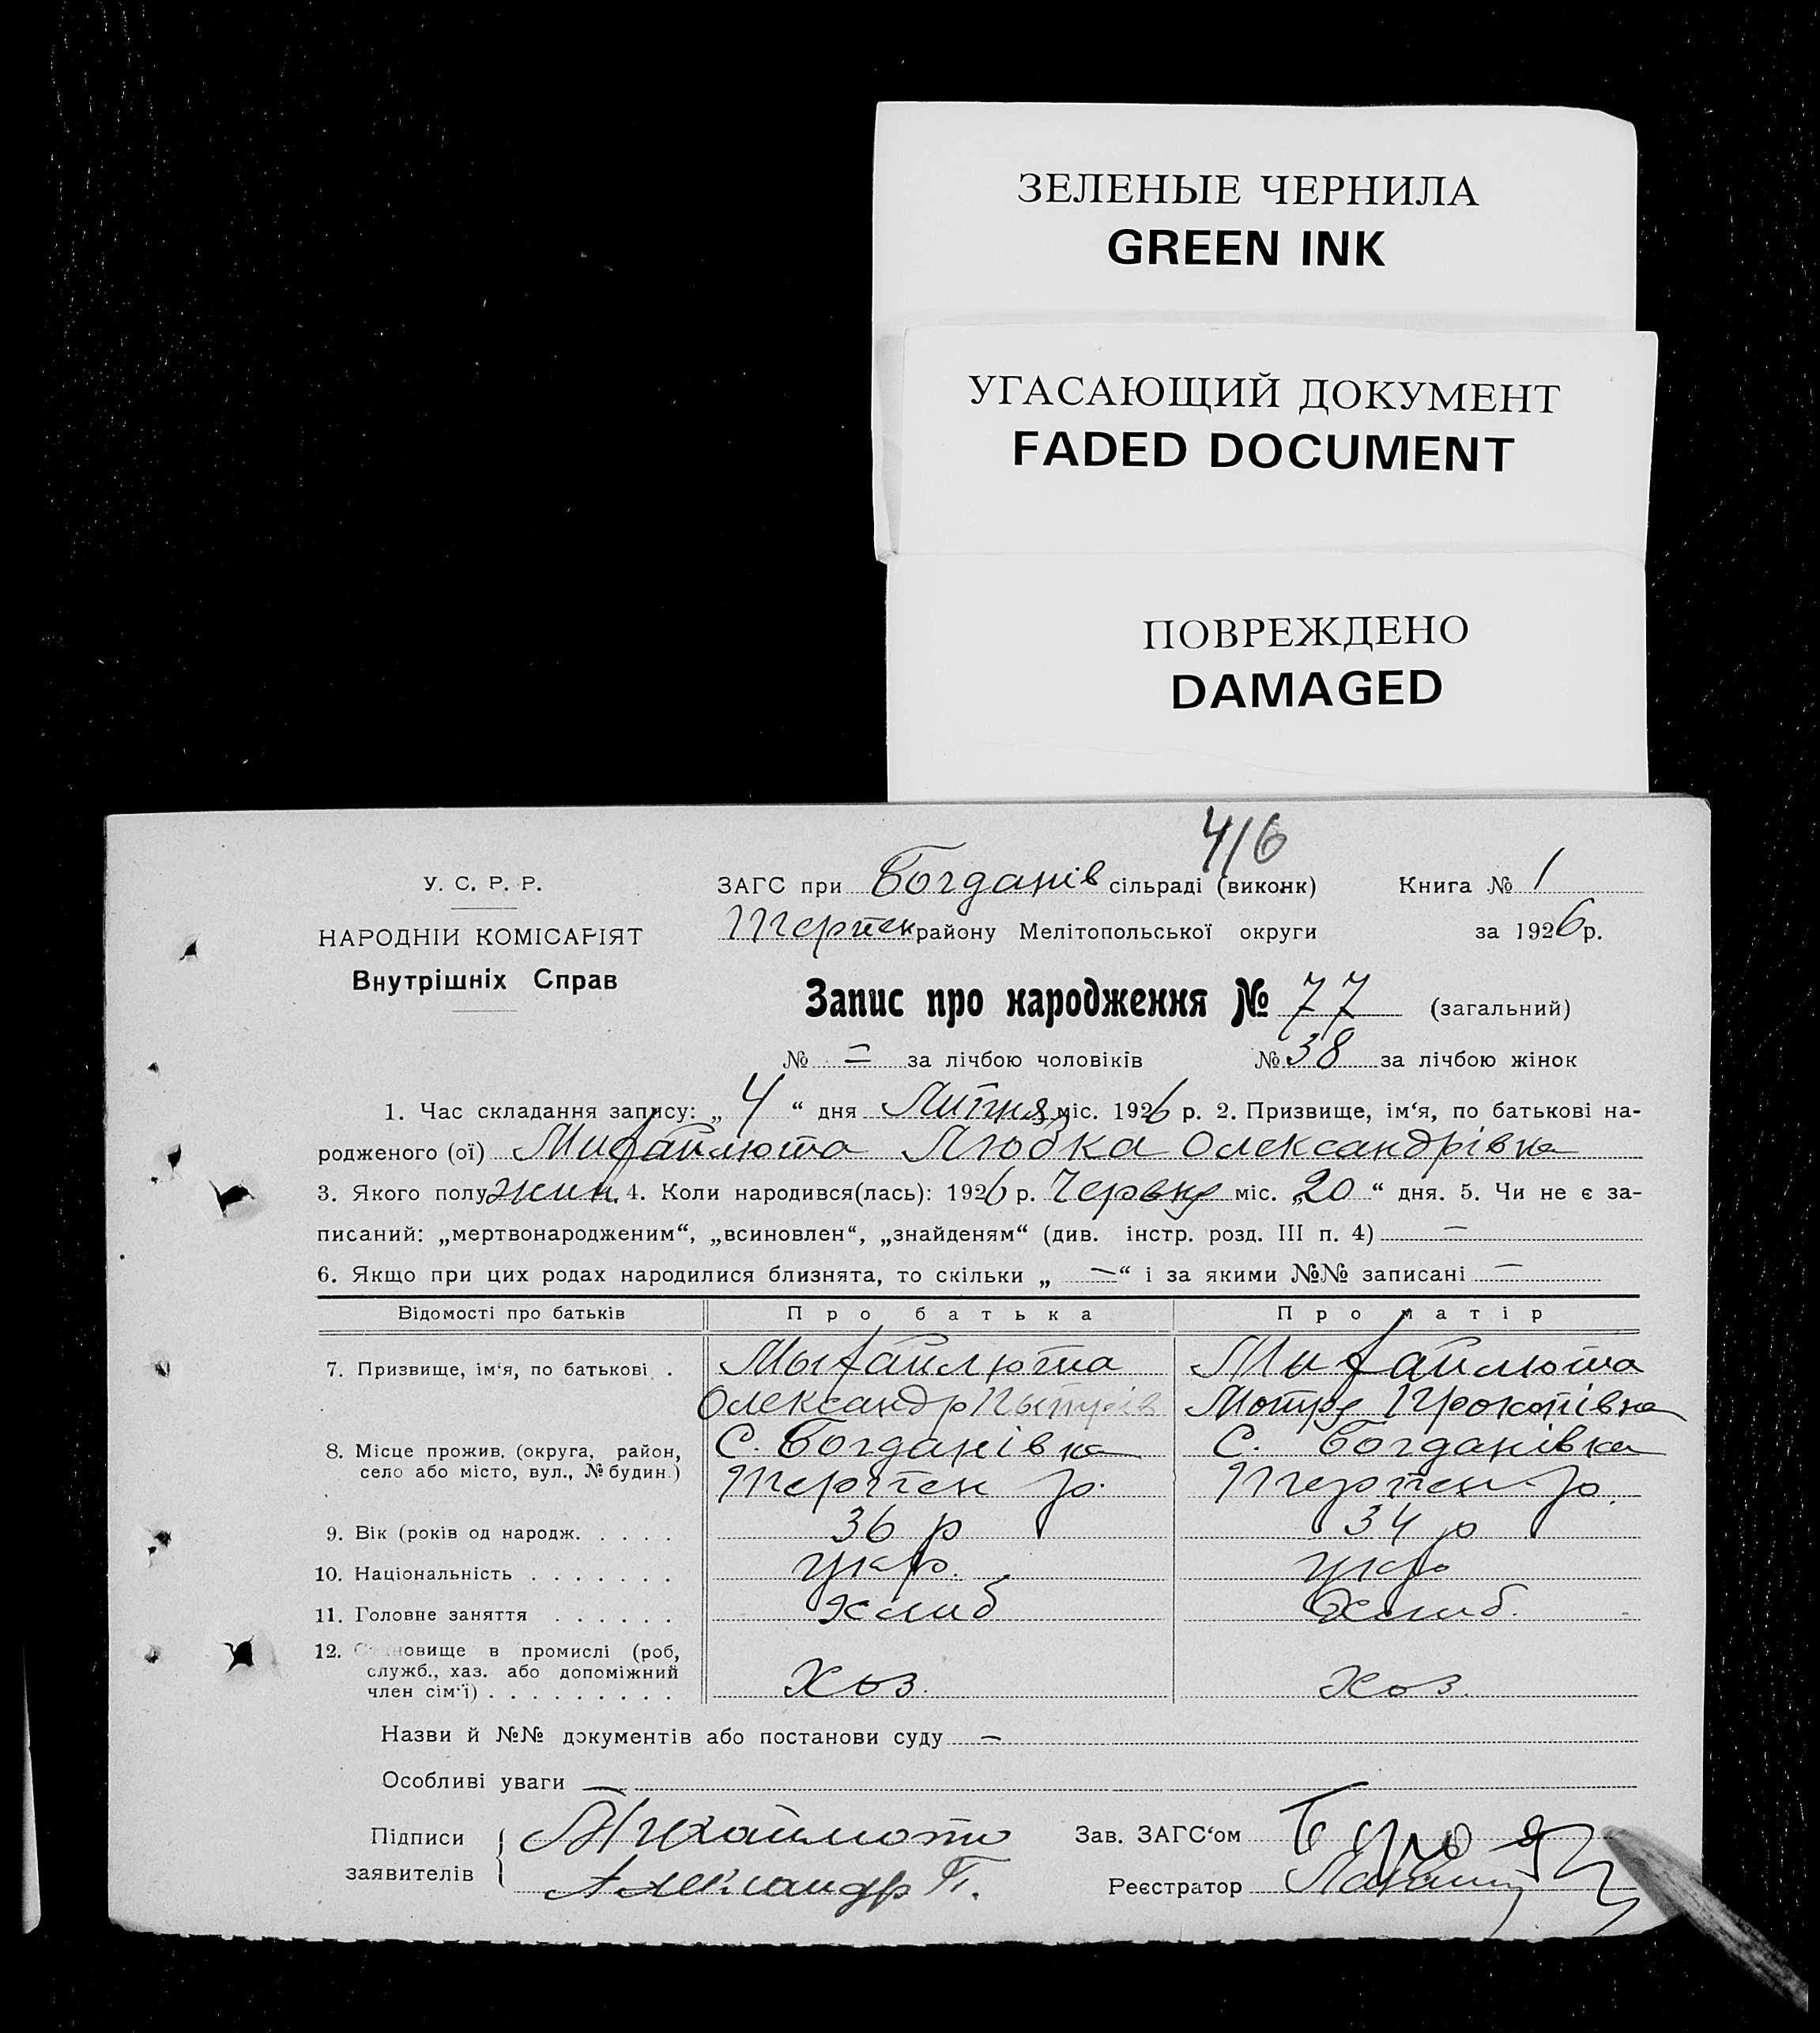 ЗЕЛЕНЫЕ ЧЕРНИЛА
GREEN INK
УГАСАЮЩИЙ ДОКУМЕНТ
FADED DOCUMENT
ПОВРЕЖДЕНО
DAMAGED
416
У. С. Р. Р.
НАРОДНІЙ КОМІСАРІЯТ
Внутрішніх Справ
ЗАГС при Богданів сільраді (виконк) Книга № 1
Терпен району Мелітопольської округи за 1926 р.
Запис про народження № 77 (загальний)
№ — за лічбою чоловіків № 38 за лічбою жінок
1. Час складання запису: „ 4 “ дня Липня міс. 1926 р. 2. Призвище, ім‘я, по батькові на-
родженого (ої) Михайлюта Любка Олександрівна
3. Якого полу жин. 4. Коли народився(лась): 1926 р. Червня міс. „20 “ дня. 5. Чи не є за-
писаний: „мертвонародженим“, „всиновлен“, „знайденям“ (див. інстр. розд. III п. 4) —
6. Якщо при цих родах народилися близнята, то скільки „ — “ і за якими №№ записані —
Відомості про батьків Про батька Про матір
7. Призвище, ім‘я, по батькові . Мыхайлюта Михайлюта
Олександр Пытрів Мотря Прокопівна
8. Місце прожив. (округа, район, С. Богданівка С. Богданівка
село або місто, вул., № будин.) Терпен р. Терпен р.
9. Вік (років од народж. . . . . 36 р 34 р
10. Національність . . . . . . . укр. укр
11. Головне заняття . . . . . . хлиб хлиб.
12. Становище в промислі (роб,
служб., хаз. або допоміжний
член сім‘ї) . . . . . . . . . Хоз. хоз.
Назви й №№ документів або постанови суду —
Особливі уваги —
Підписи заявителів { Михайлюта
Александр П.
Зав. ЗАГС‘ом
Реєстратор